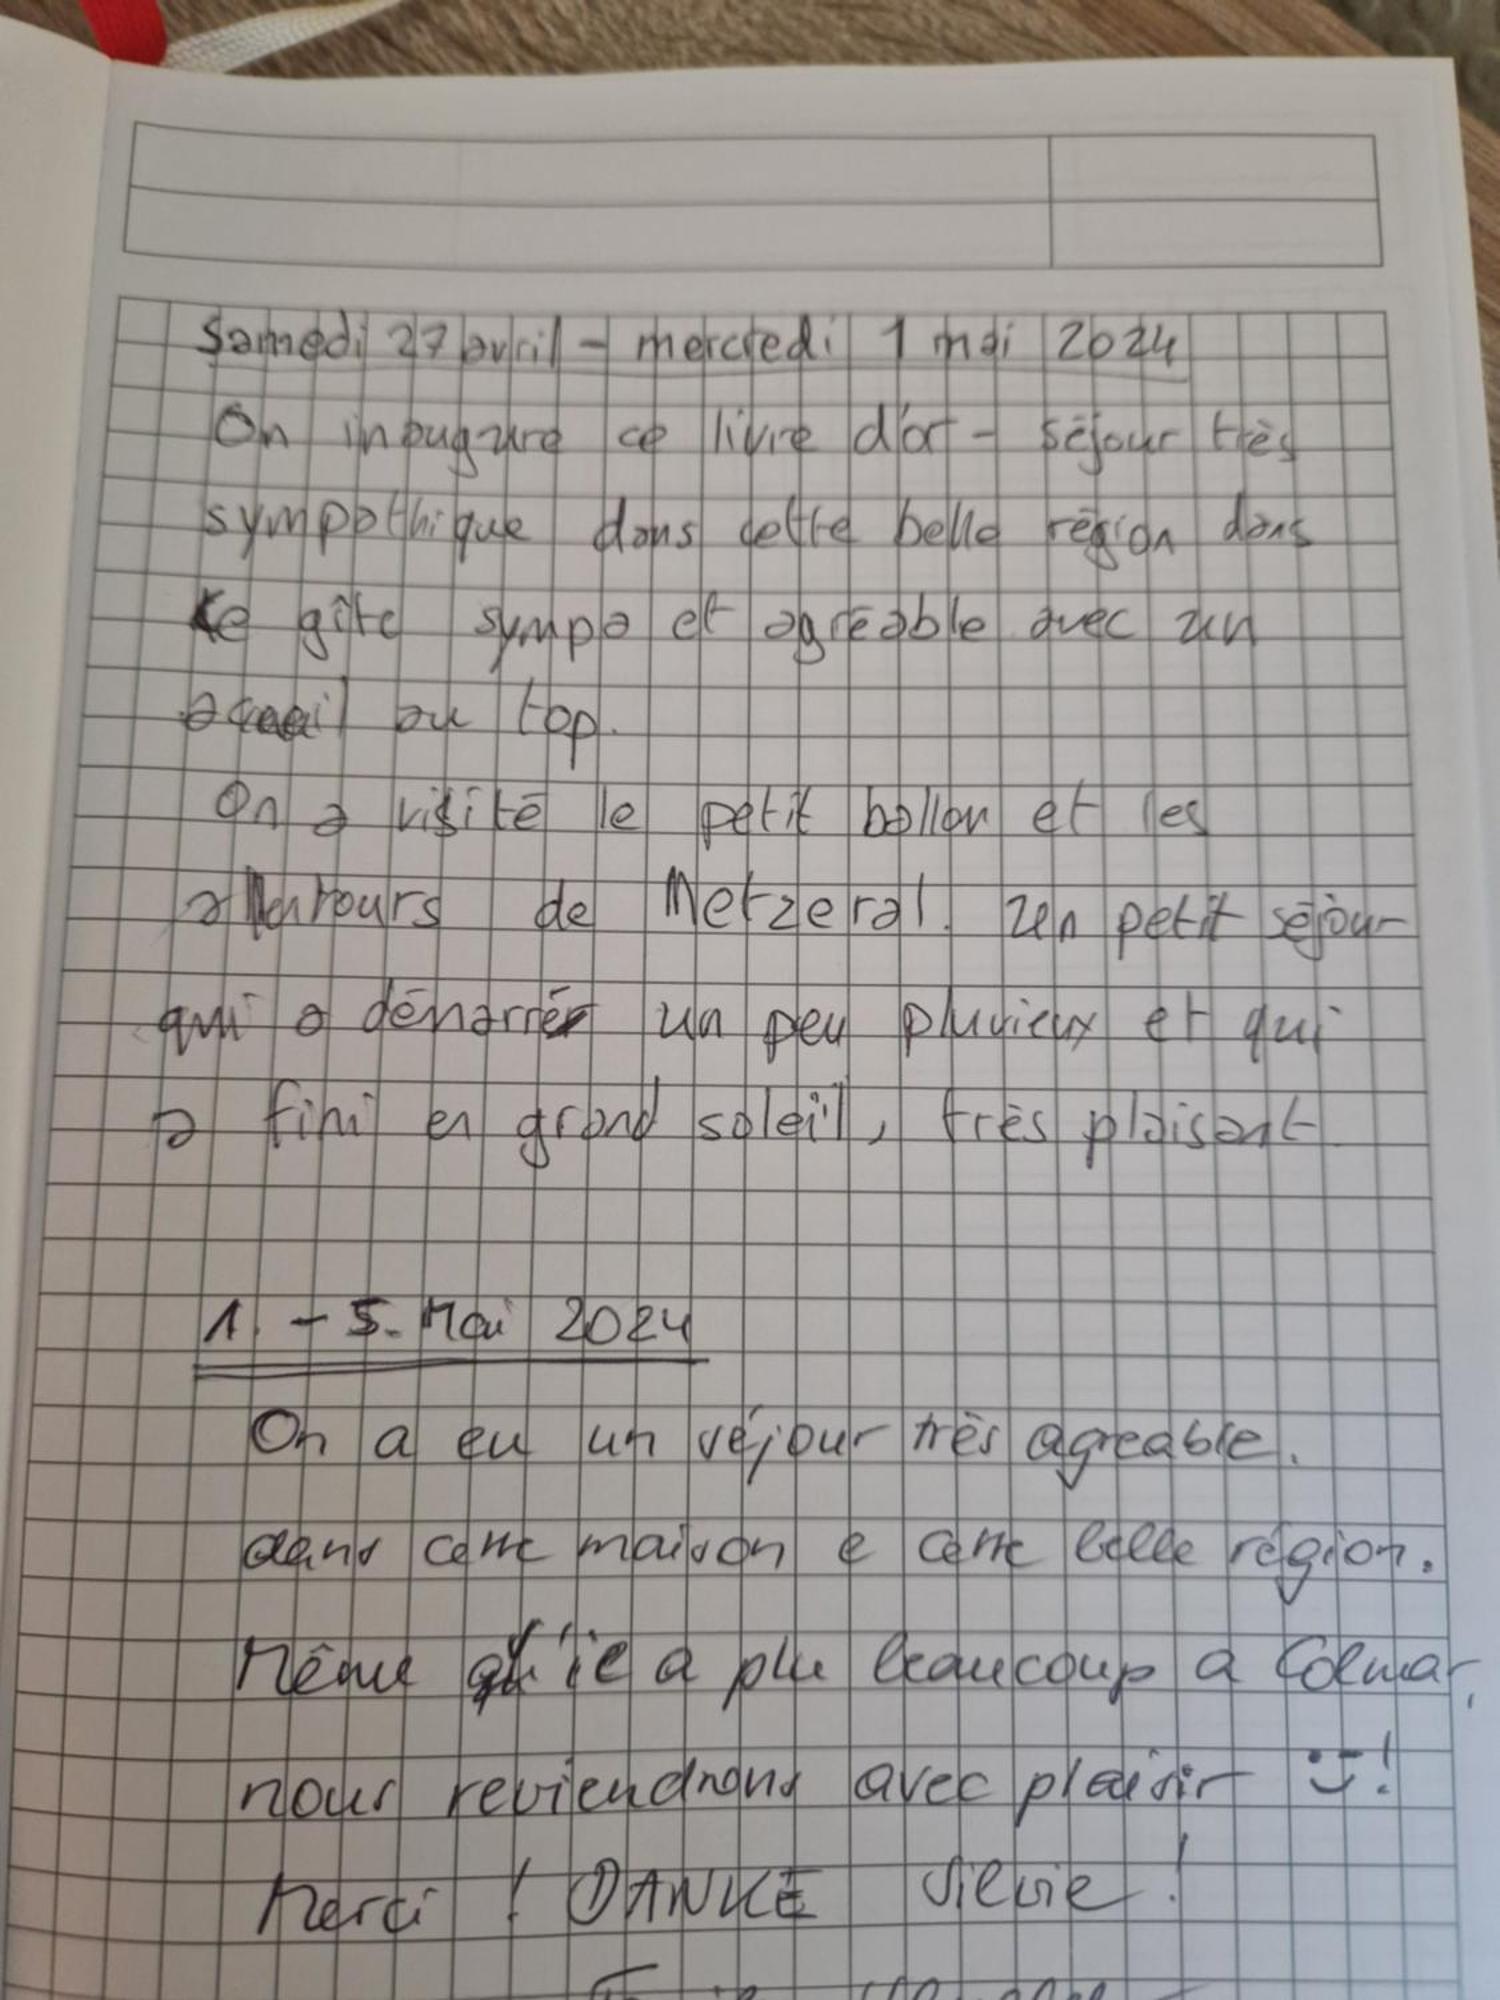 Samedi 27 avril - mercredi 1 mai 2024
On inaugure ce livre d'or - séjour très
sympathique dans cette belle région dans
ce gîte sympa et agréable avec un
acueil au top.
On a visité le petit ballon et les
alentours de Metzeral. Un petit séjour
qui a démarré un peu pluvieux et qui
a fini en grand soleil, très plaisant
1. - 5. Mai 2024
On a eu un séjour très agreable.
dans cette maison e cette belle région.
Même qu'il a plu beaucoup a Colmar,
nous reviendrons avec plaisir :-)!
Merci ! DANKE Silvie !